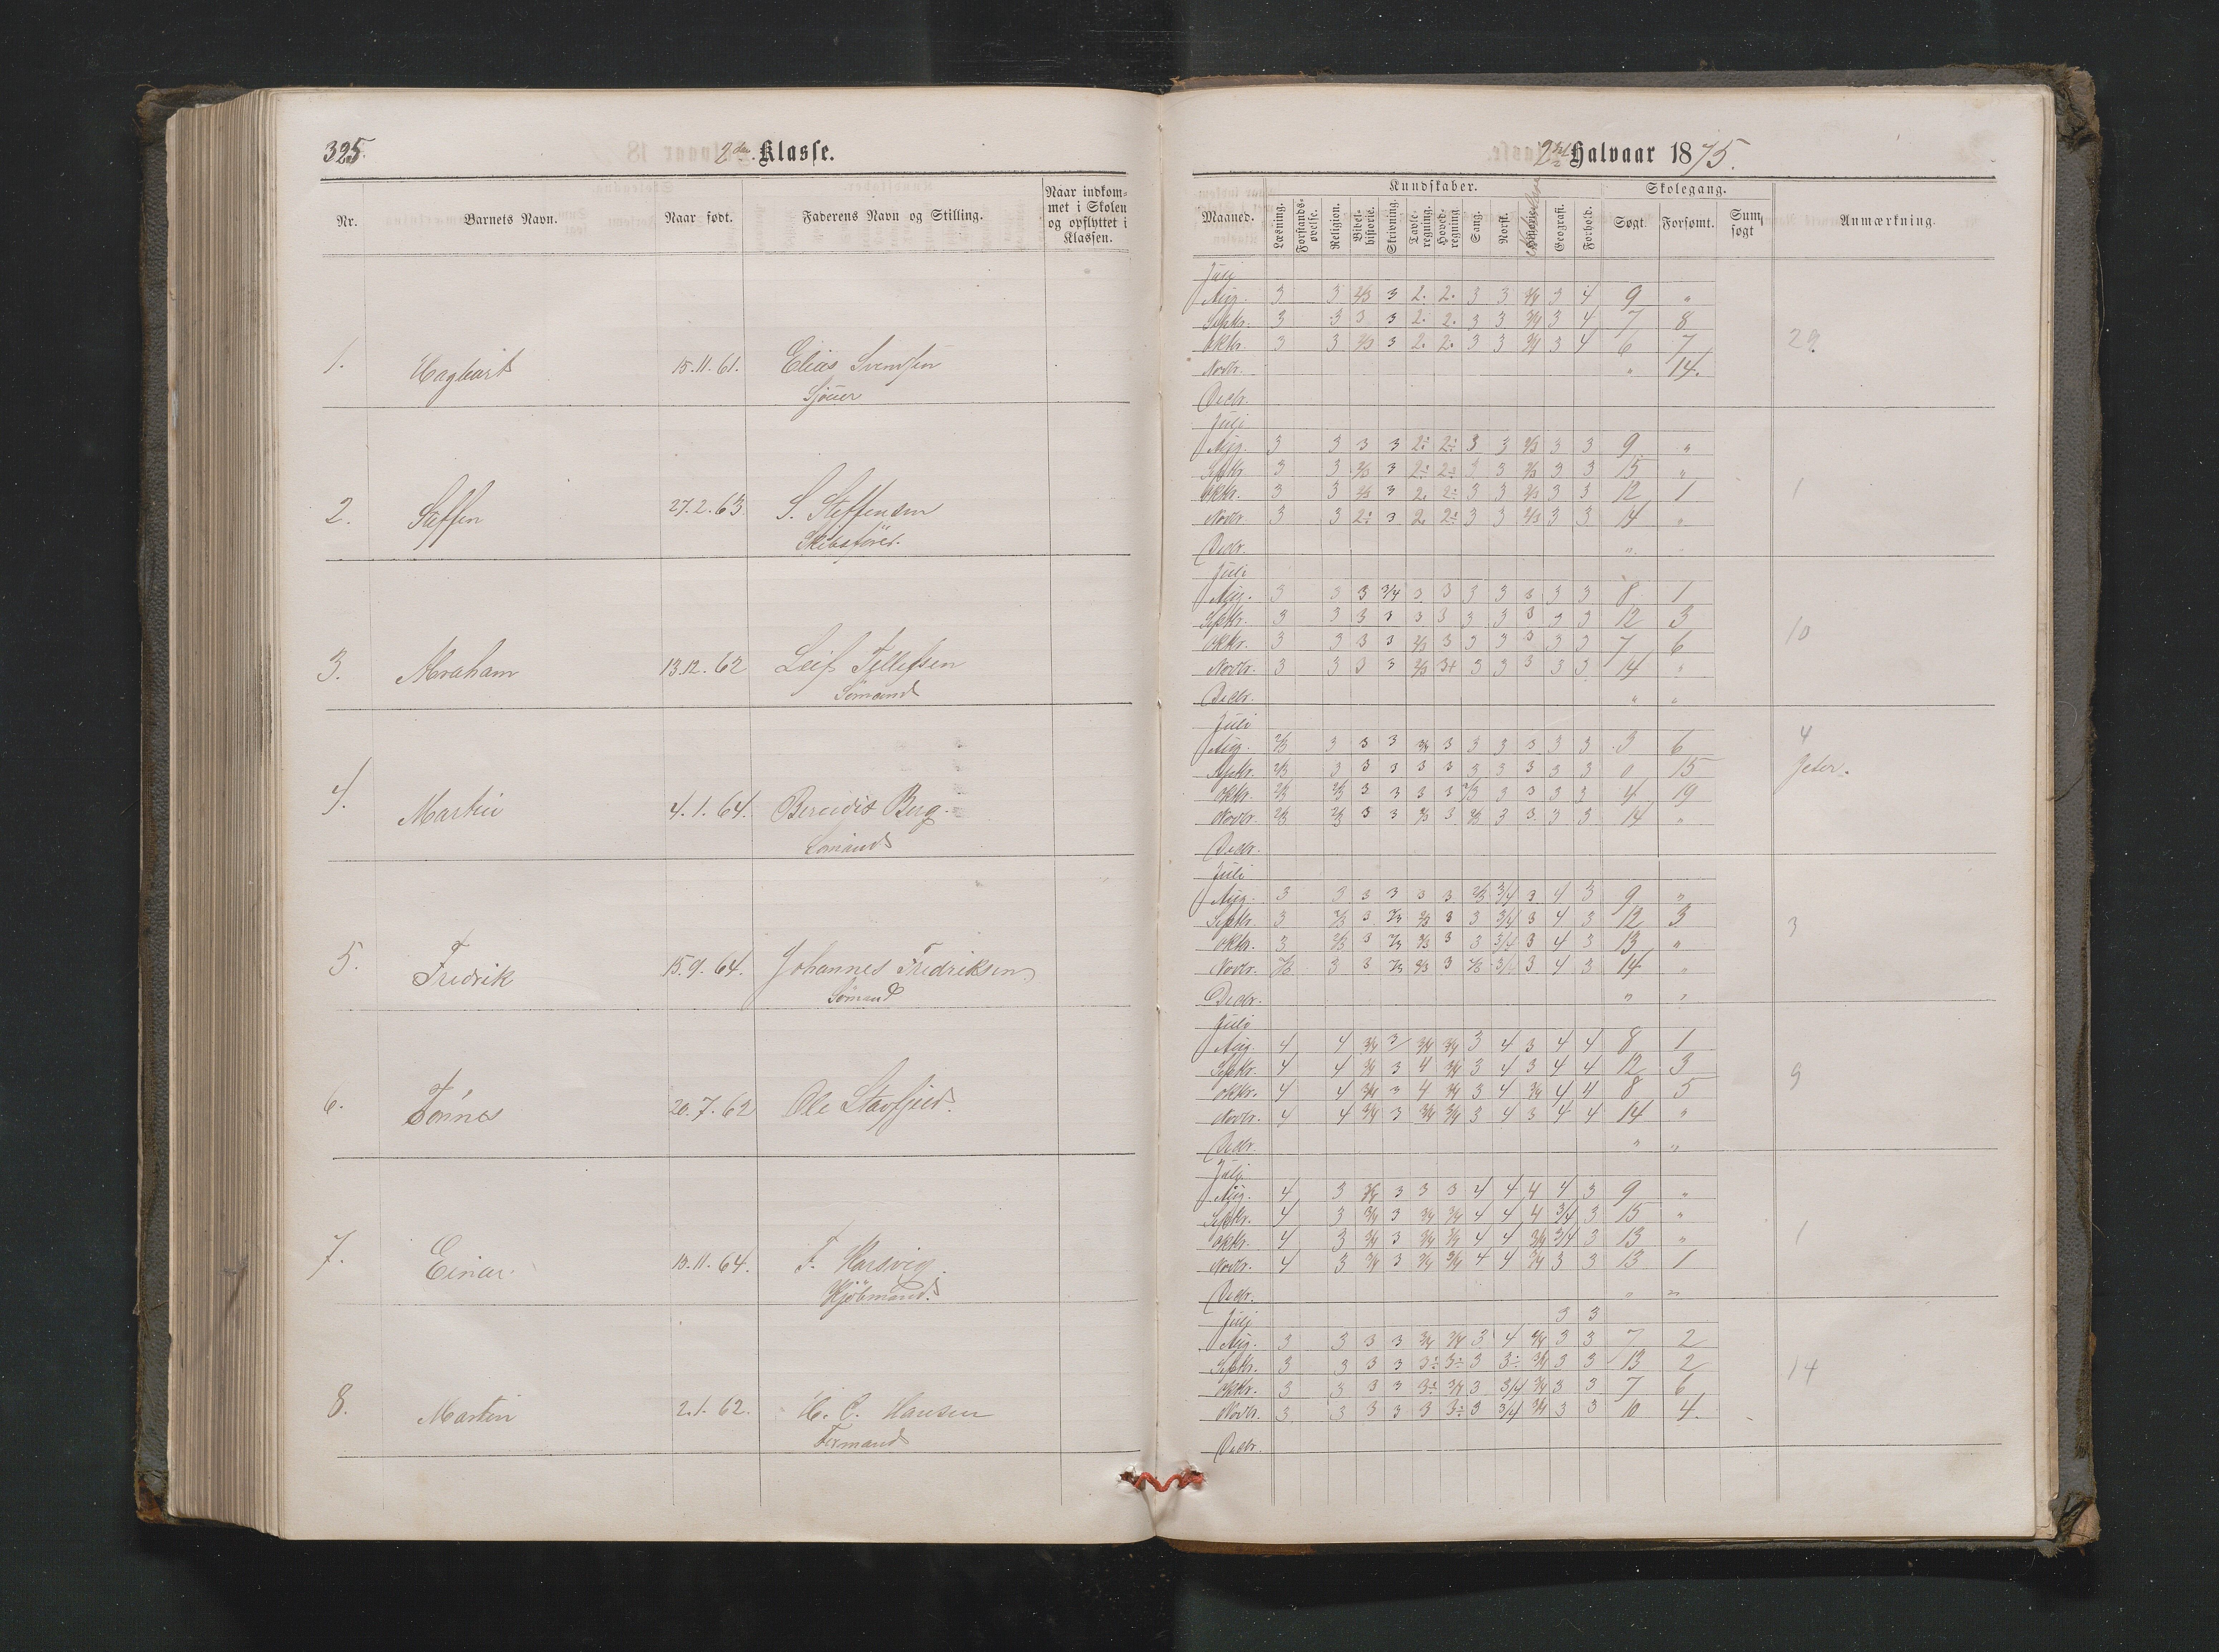 325.
2den Klasse.
Nr.
Barnets Navn.
Naar født.
Faderens Navn og Stilling.
Naar indkom-
met i Skolen
og opflyttet i
Klassen.
1. Hagbart 15.11.61. Elias Svendsen
Sjouer
2. Steffen 27.2.63. S. Steffensen
Skibsfører.
3. Abraham 13.12.62 Leif Tellefsen
Sömand
4. Martin 4.1.64. Berndt Berg.
Sömand
5. Fredrik 15.9.64. Johannes Fredriksen
Sömand
6. Tönnes 20.7.62 Ole
7. Einar. 13.11.64. F. Harsvig.
Kjöbmand.
8. Martin 2.1.62. H. C. Hansen
Tермand
2det Halvaar 1875.
Maaned.
Kundskaber.
Læsning.
Forstands-
øvelse.
Religion.
Bibel-
historie.
Skrivning.
Tavle-
regning.
Hoved-
regning
Sang.
Norsk.
Geografi.
Forhold.
Skolegang.
Søgt.
Forsømt.
Sum
søgt
Anmærkning.
Juli
Aug. 3 3 2/3 3 2. 2. 3 3 3/4 3 4 9 "
Septbr. 3 3 3 3 2. 2. 3 3 3/4 3 4 7 8
Oktbr. 3 3 2/3 3 2. 2. 3 3 3/4 3 4 6 7 29
Novbr. " 14.
Decbr.
Juli
Aug. 3 3 3 3 2÷ 2÷ 3 3 2/3 3 3 9 "
Septbr. 3 3 2/3 3 2÷ 2÷ 3 3 2/3 3 3 15 "
Oktbr. 3 3 2/3 3 2. 2÷ 3 3 2/3 3 3 12 1 1
Novbr. 3 3 2÷ 3 2. 2÷ 3 3 2/3 3 3 14 "
Decbr. "
Juli
Aug. 3 3 3 3/4 3 3 3 3 3 3 3 8 1
Septbr. 3 3 3 3 3 3 3 3 3 3 3 12 3
Oktbr. 3 3 3 3 2/3 3 3 3 3 3 3 7 6 10
Novbr. 3 3 3 3 2/3 3+ 3 3 3 3 3 14 "
Decbr. " "
Juli 4
Aug. 2/3 3 3 3 3/4 3 3 3 3 3 3 3 6
Septbr. 2/3 3 3 3 3 3 3 3 3 3 3 0 15 Jeter.
Oktbr. 2/3 2/3 3 3 3 3 2/3 3 3 3 3 4 19
Novbr. 2/3 2/3 3 3 2/3 3 2/3 3 3 3 3 14 "
Decbr.
Juli
Aug. 3 3 3 3 3 3 2/3 3/4 3 4 3 9 "
Septbr. 3 2/3 3 2/3 2/3 3 3 3/4 3 4 3 12 3
Oktbr. 3 2/3 3 2/3 2/3 3 3 3/4 3 4 3 13 " 3
Novbr. 2/3 3 3 2/3 2/3 3 2/3 3/4 3 4 3 14 "
Decbr. " "
Juli
Aug. 4 4 3/4 3 3/4 3/4 3 4 3 4 4 8 1
Septbr. 4 4 3/4 3 4 3/4 3 4 3 4 4 12 3
Oktbr. 4 4 3/4 3 4 3/4 3 4 3/4 4 4 8 5 9
Novbr. 4 4 3/4 3 3/4 3/4 3 4 3 4 4 14 "
Decbr. " "
Juli
Aug. 4 3 3/4 3 3 3 4 4 4 4 3 9 "
Septbr. 4 3 3/4 3 3/4 3/4 4 4 4 3/4 3 15 "
Oktbr. 4 3 3/4 3 3/4 3/4 4 4 3/4 3/4 3 13 " 1
Novbr. 4 3 3/4 3 3/4 3/4 4 4 3/4 3 3 13 1
Decbr. " "
Juli 3 3
Aug. 3 3 3 3 3/4 3/4 3 4 3/4 3 3 7 2
Septbr. 3 3 3 3 3÷ 3÷ 3 3÷ 3/4 3 3 13 2
Oktbr. 3 3 3 3 3÷ 3/4 3 3/4 3/4 3 3 7 6 14
Novbr. 3 3 3 3 3 3÷ 3 3/4 3/4 3 3 10 4.
Decbr.